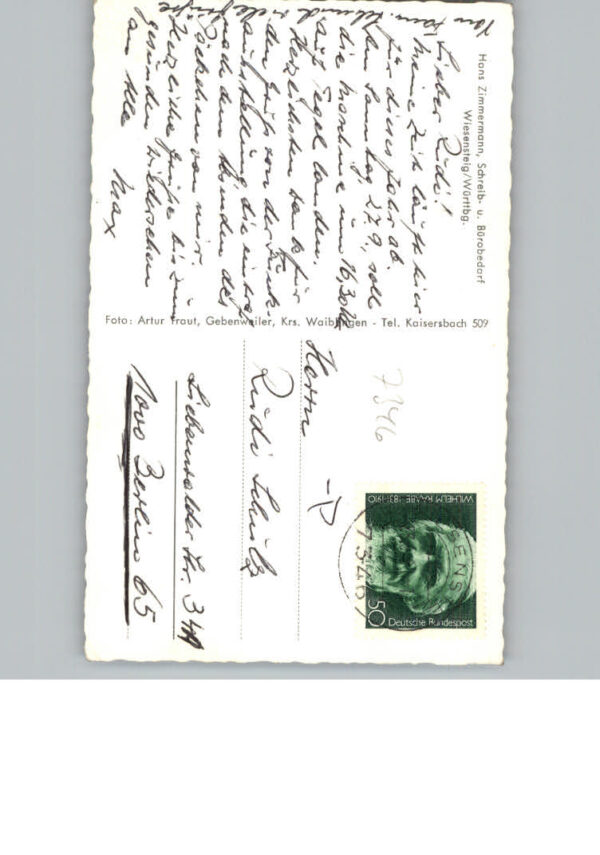 Hans Zimmermann, Schreib- u. Bürobedarf
Wiesensteig/Württbg.
Lieber Rudi!
Meine Zeit läuft hier
für dieses Jahr ab.
Am Samstag, 27.9., soll
die Maschine um 16,30 Uhr
auf Tegel landen.
Herzlichsten Dank für
den Gruß von der Funk-
ausstellung, die
nach dem
von mir.
Herzliche Grüße bis zum
gesunden Wiedersehen
an alle Max
Foto: Artur Traut, Gebenweiler, Krs. Waiblingen - Tel. Kaisersbach 509
7346
Herrn
Rudi Schulz
Liebenwalder Str. 34A
1000 Berlin 65
WILHELM RAABE 1831-1910
50 Deutsche Bundespost